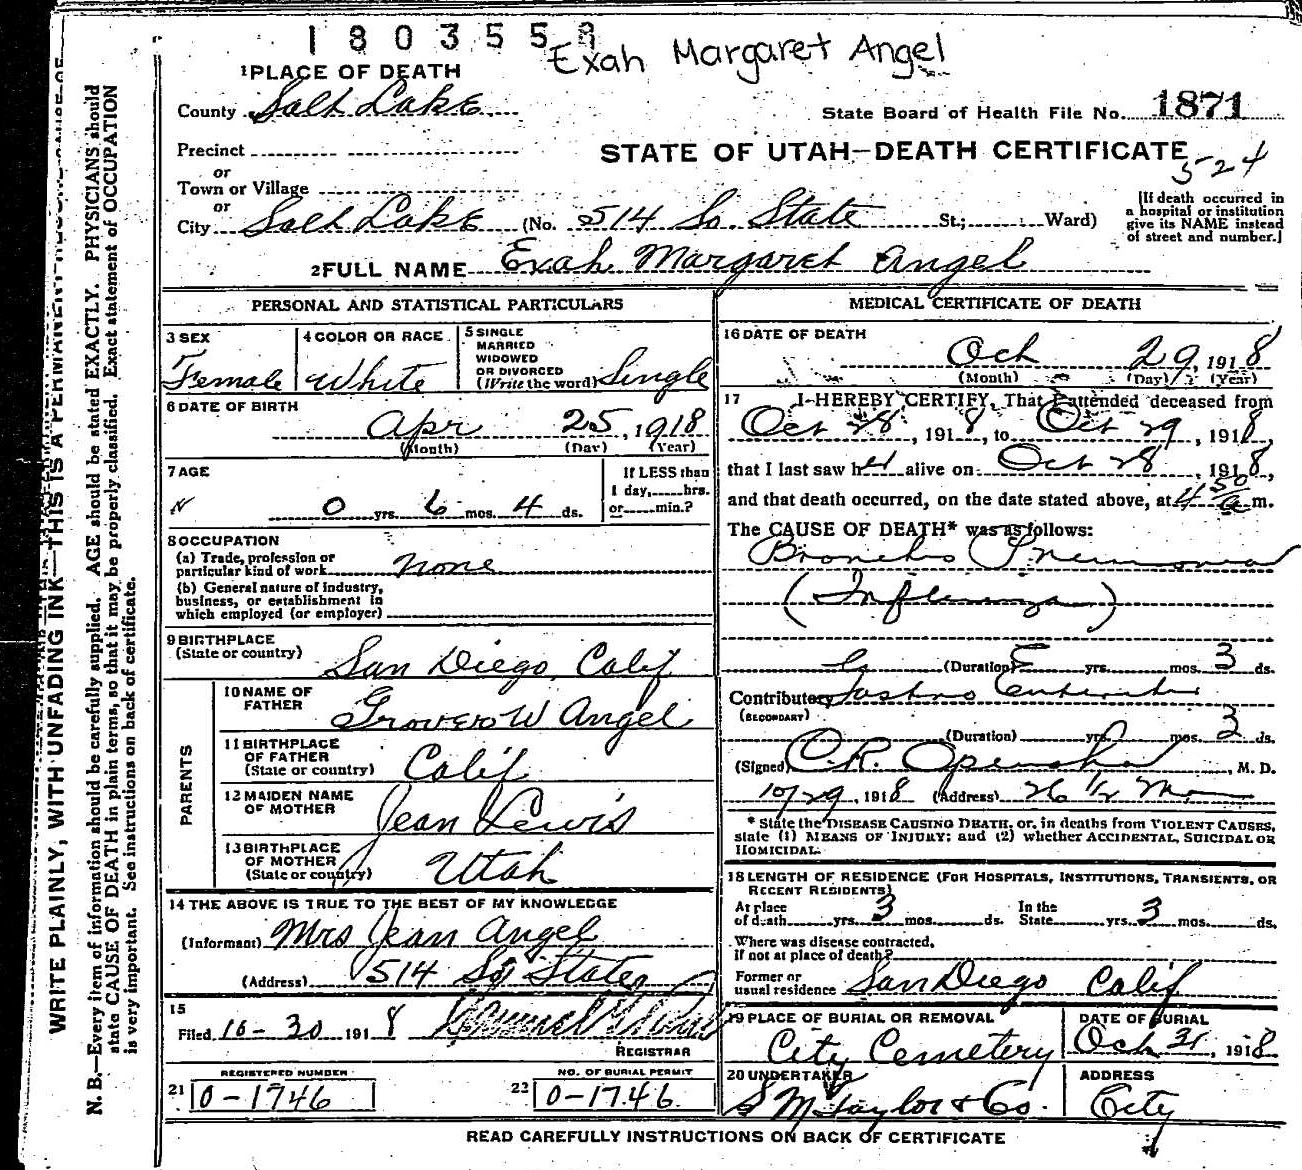 1803553
Exah Margaret Angel
1 PLACE OF DEATH
County Salt Lake
State Board of Health File No. 1871
Precinct
STATE OF UTAH—DEATH CERTIFICATE
524
or
Town or Village
or
City Salt Lake (No. 514 So. State St.; Ward)
[If death occurred in
a hospital or institution
give its NAME instead
of street and number.]
2 FULL NAME Exah Margaret Angel
PERSONAL AND STATISTICAL PARTICULARS
3 SEX
Female
4 COLOR OR RACE
White
5 SINGLE
MARRIED
WIDOWED
OR DIVORCED
(Write the word) Single
6 DATE OF BIRTH
Apr 25, 1918
(Month) (Day) (Year)
7 AGE
0 yrs. 6 mos. 4 ds.
If LESS than
1 day, hrs.
or min.?
8 OCCUPATION
(a) Trade, profession or
particular kind of work none
(b) General nature of industry,
business, or establishment in
which employed (or employer)
9 BIRTHPLACE
(State or country) San Diego, Calif
PARENTS
10 NAME OF
FATHER Grover W Angel
11 BIRTHPLACE
OF FATHER
(State or country) Calif
12 MAIDEN NAME
OF MOTHER Jean Lewis
13 BIRTHPLACE
OF MOTHER
(State or country) Utah
14 THE ABOVE IS TRUE TO THE BEST OF MY KNOWLEDGE
(Informant) Mrs Jean Angel
(Address) 514 So State
15
Filed 10-30 1918
REGISTRAR
REGISTERED NUMBER
21 0-1746
NO. OF BURIAL PERMIT
22 0-1746
MEDICAL CERTIFICATE OF DEATH
16 DATE OF DEATH
Oct 29, 1918
(Month) (Day) (Year)
17 I HEREBY CERTIFY, That I attended deceased from
Oct 28, 1918, to Oct 29, 1918,
that I last saw h alive on Oct 28, 1918,
and that death occurred, on the date stated above, at 4 50 a m.
The CAUSE OF DEATH* was as follows:
Broncho Pneumonia
(Influenza)
(Duration) yrs. mos. 3 ds.
Contributory Gastro Enteritis
(SECONDARY)
(Duration) yrs. mos. 3 ds.
(Signed) O.R. Openshaw, M. D.
10/29, 1918 (Address) 26 1/2
* State the DISEASE CAUSING DEATH, or, in deaths from VIOLENT CAUSES,
state (1) MEANS OF INJURY; and (2) whether ACCIDENTAL, SUICIDAL OR
HOMICIDAL.
18 LENGTH OF RESIDENCE (FOR HOSPITALS, INSTITUTIONS, TRANSIENTS, OR
RECENT RESIDENTS)
At place
of death yrs. 3 mos. ds. In the
State yrs. 3 mos. ds.
Where was disease contracted,
if not at place of death?
Former or
usual residence San Diego Calif
19 PLACE OF BURIAL OR REMOVAL
City Cemetery
DATE OF BURIAL
Oct 31, 1918
20 UNDERTAKER
S M Taylor & Co.
ADDRESS
City
READ CAREFULLY INSTRUCTIONS ON BACK OF CERTIFICATE
WRITE PLAINLY, WITH UNFADING INK—THIS IS A PERMANENT
N. B.—Every item of information should be carefully supplied. AGE should be stated EXACTLY. PHYSICIANS should
state CAUSE OF DEATH in plain terms, so that it may be properly classified. Exact statement of OCCUPATION
is very important. See instructions on back of certificate.